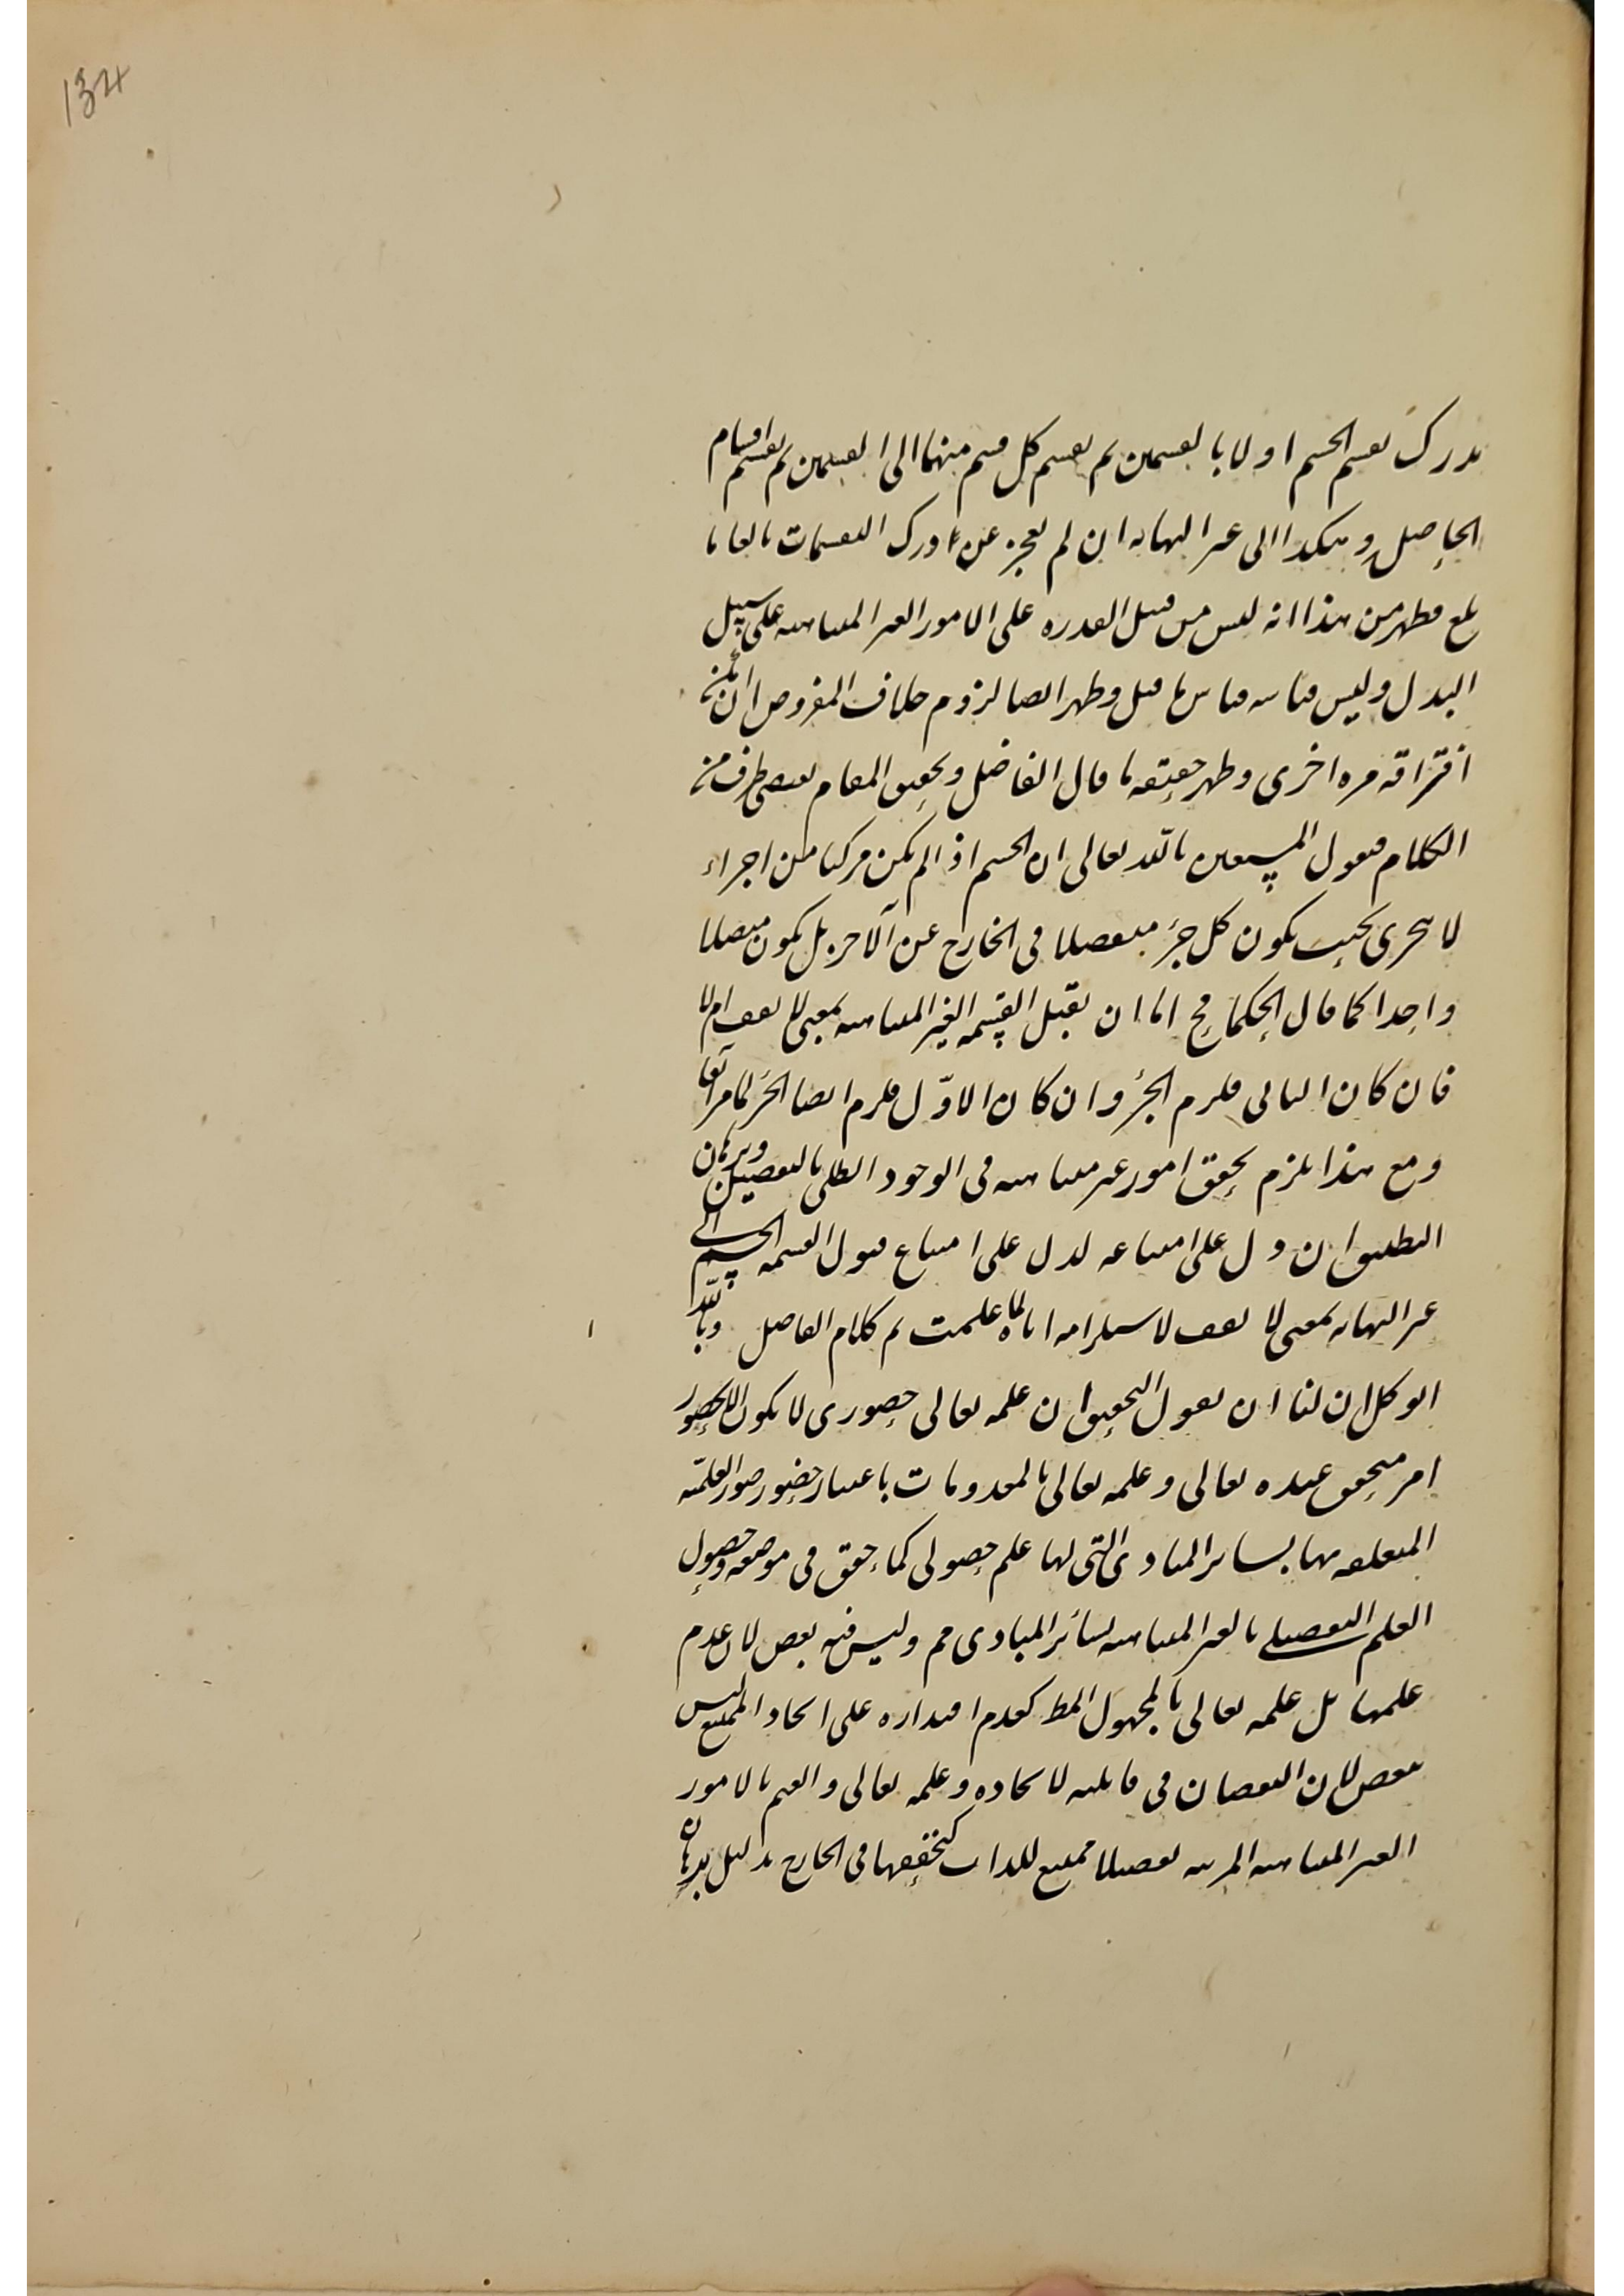 134
يدرك تقسيم الجسم اولا بالقسمين ثم تقسيم كل قسم منهما الى القسمين ثم تقسيم اقسام
الحاصل وهكذا الى غير النهايه ان لم يعجز عن ادرك التقسيمات بالغا ما
بلغ فظهر من هذا انه ليس من قبيل القدره على الامور الغير المتناهيه على سبيل
البدل وليس قياسه قياس ما قيل وظهر ايضا لزوم خلاف المفروض ان امكن
افتراقه مره اخرى وظهر حقيقه ما قال الفاضل وتحقيق المقام يقتضى طرف من
الكلام فنقول المستعين بالله تعالى ان الجسم اذا لم يكن مركبا من اجزاء
لا يتجزى بحيث يكون كل جزء منفصلا فى الخارج عن الآخر بل يكون متصلا
واحدا كما قال الحكما فح اما ان يقبل القسمه الغير المتناهيه بمعنى لا يقف ام لا
فان كان الثانى فلزم الجزء وان كان الاوّل فلزم ايضا الجزء كما مر آنفا
ومع هذا يلزم تحقق امور غير متناهيه فى الوجود الظلى بالتفصيل وبرهان
التطبيق ان دل على امتناعه لدل على امتناع قبول القسمه الجسم الى
غير النهايه بمعنى لا يقف لاستلزامه اياه لما علمت تم كلام الفاضل وبالله
التوكل ان لنا ان نقول التحقيق ان علمه تعالى حضورى لا يكون الا بحضور
امر متحقق عنده تعالى وعلمه تعالى بالمعدومات باعتبار حضور صور العلميّه
المتعلقه بها بسائر المبادى التى لها علم حصولى كما حقق فى موضعه وحصول
العلم التفصيلى بالغير المتناهيه لسائر المبادى مم وليس فيه نقص لان عدم
علمها بل علمه تعالى بالمجهول المط كعدم اقتداره على ايجاد الممتنع ليس
بنقص لان النقصان فى قابليه لايجاده وعلمه تعالى والعلم بالامور
الغير المتناهيه المرتبه تفصيلا ممتنع للذات كتحققها فى الخارج بدليل برهان